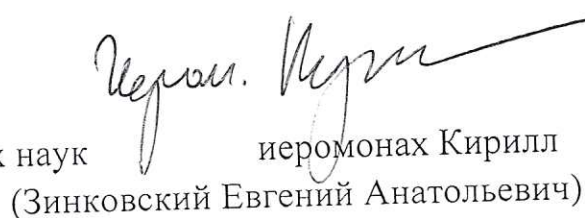 Иером. Кирилл
х наук иеромонах Кирилл
(Зинковский Евгений Анатольевич)